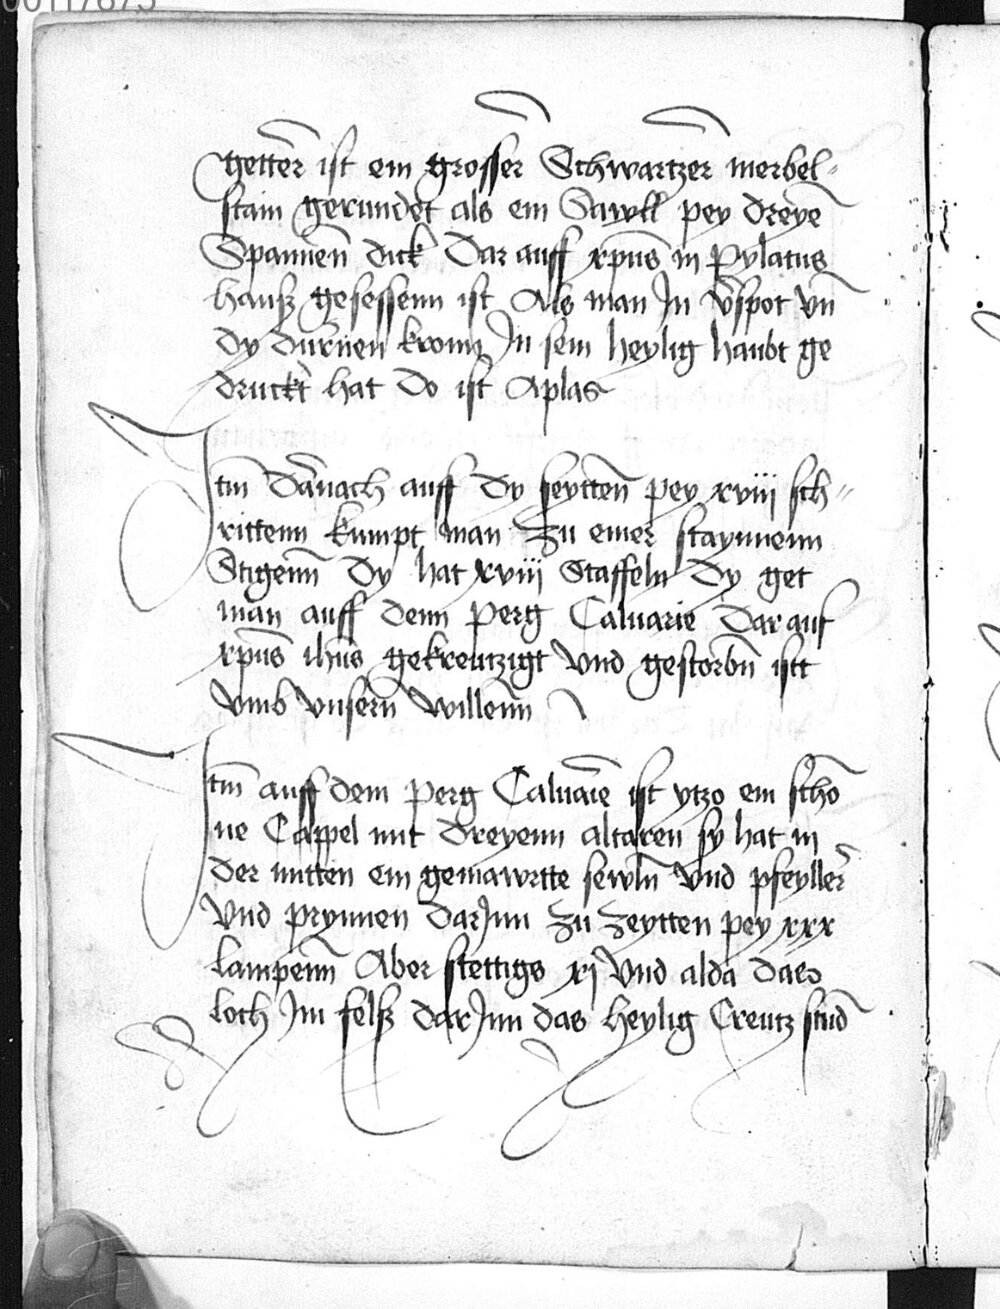 00117875
getter ist ein grosser Schwartzer merbel-
stain gerundet als ein Sawll pey dreye
Spannen dick Dar auff xpus in Pylatus
hauß gesessenn ist Als man In vspot vn
dy durnen kronn In sein heylig haubt ge
druckt hat Do ist Aplas
Itm Darnach auff dy seyttn pey xviij sch-
rittenn kumpt man zu einer staynnenn
Stigenn Dy hat xviij Staffeln Dy get
man auff denn perg Caluarie Dar auf
xpus ihus gekreutzigt vnd gestorbn ist
vmb vnsern willenn
Itm auff dem perg Caluarie ist ytzo ein scho
ne Cappel mit dreyenn altaren sy hat in
der mitten ein gemawrtte sewln vnd pfeyller
vnd prynnen darInn zu zeytten pey xxx
lampenn Aber stettigs xj vnd alda das
loch Im felß darInn das heylig Creutz stnd